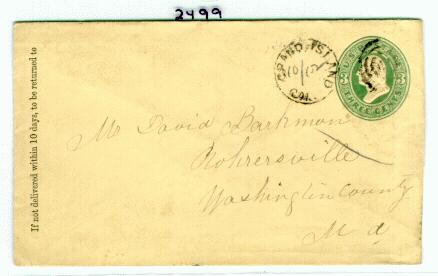 2499
GRAND ISLAND
10/12
CAL.
U.S. POSTAGE
3 3
THREE CENTS
If not delivered within 10 days, to be returned to
Mr David Barkman
Rohrersville
Washington County
M d